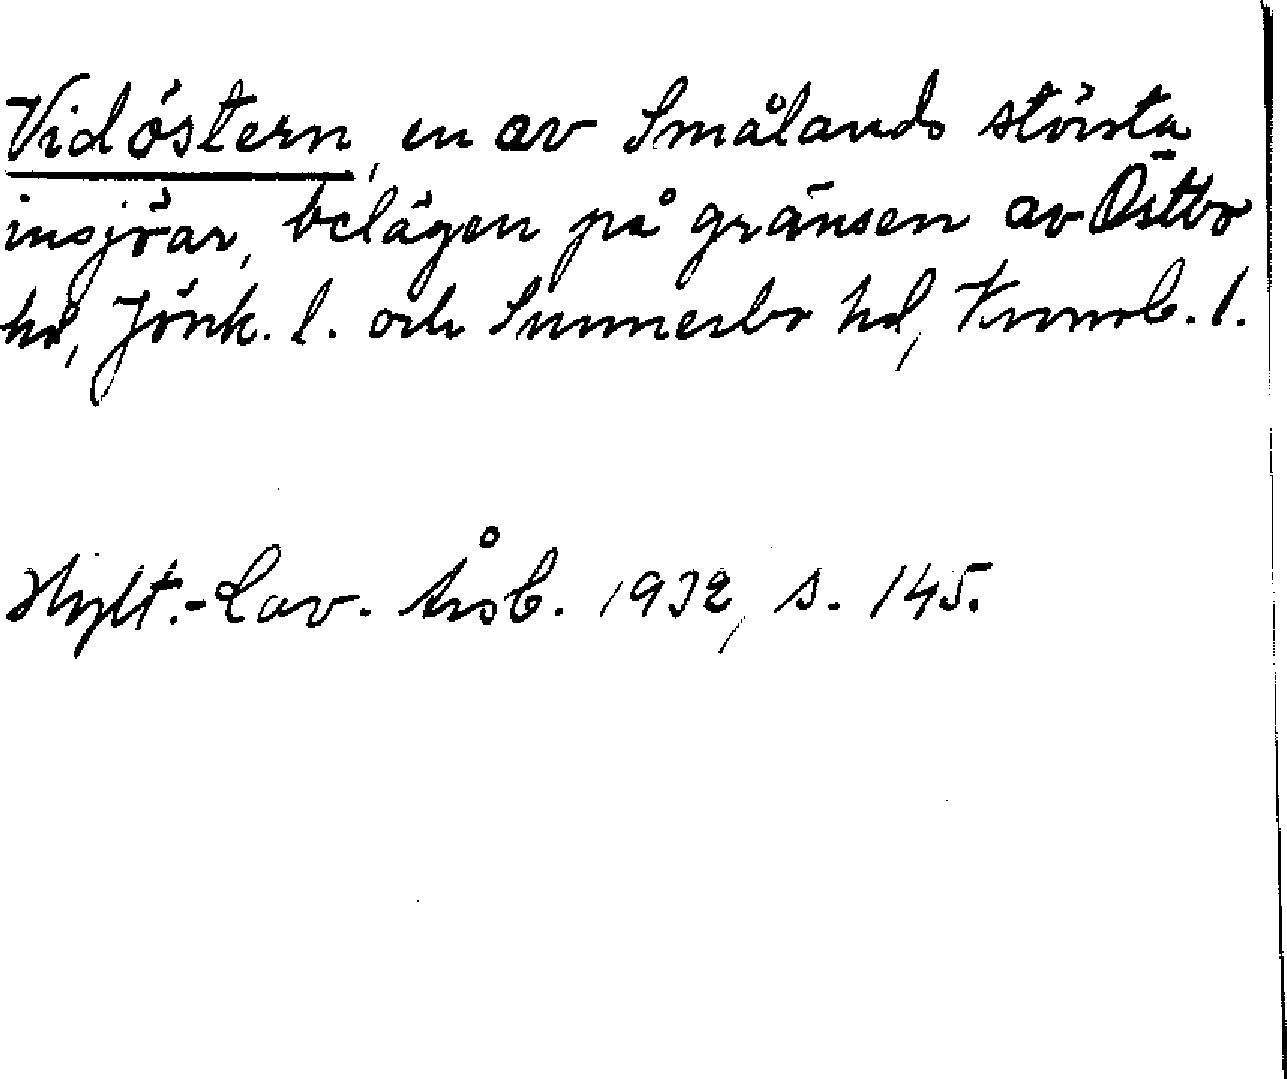 Vidöstern, en av Smålands största
insjöar, belägen på gränsen av Östbo
hd, Jönk. l. och Sunnerbo hd, Kronob. l.
Hylt.-Cav. Årsb. 1932, s. 145.